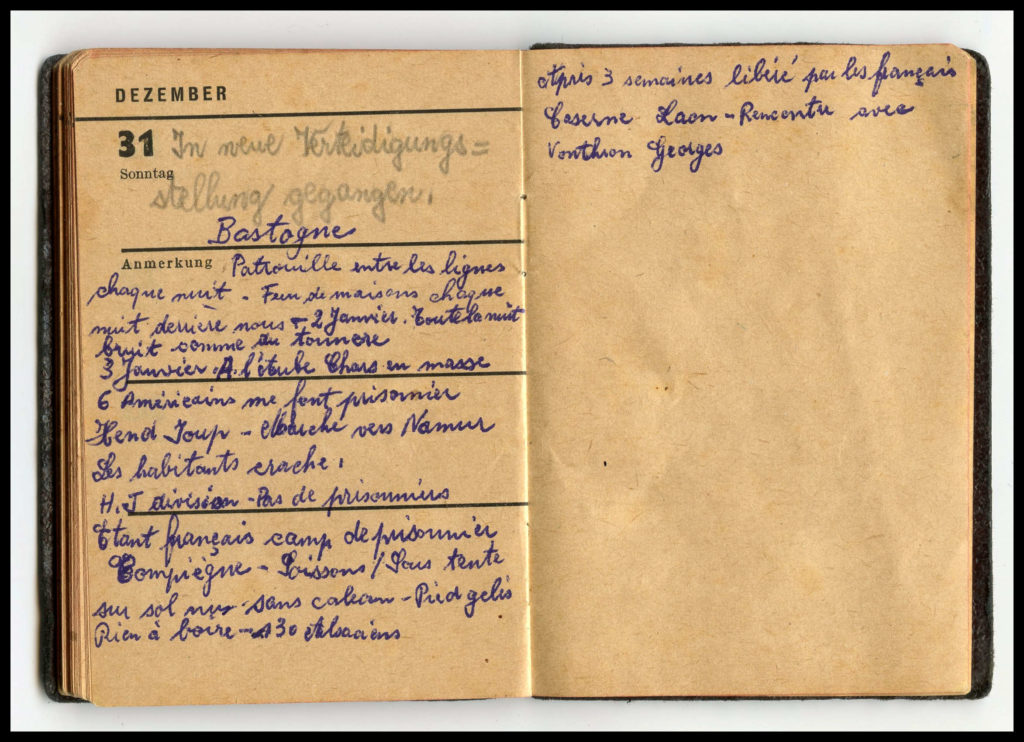 DEZEMBER
31 In neue Verteidigungs=
Sonntag
stellung gegangen.
Bastogne
Anmerkung Patrouille entre les lignes
chaque nuit - Feu de maisons chaque
nuit derrière nous - 2 Janvier. Toute la nuit
bruit comme du tonnere
3 Janvier. A l'étube Chars en masse
6 Américains me font prisonnier
Hend Joup - Marche vers Namur
Les habitants crache.
H.J division - Pas de prisonniers
Etant français camp de prisonnier
Compiègne - Soissons / Sous tente
sur sol nu - sans - Pied gelés
Rien à boire - 130 Alsaciens
Après 3 semaines libéré par les français
Caserne Laon - Rencontre avec
Vonthron Georges